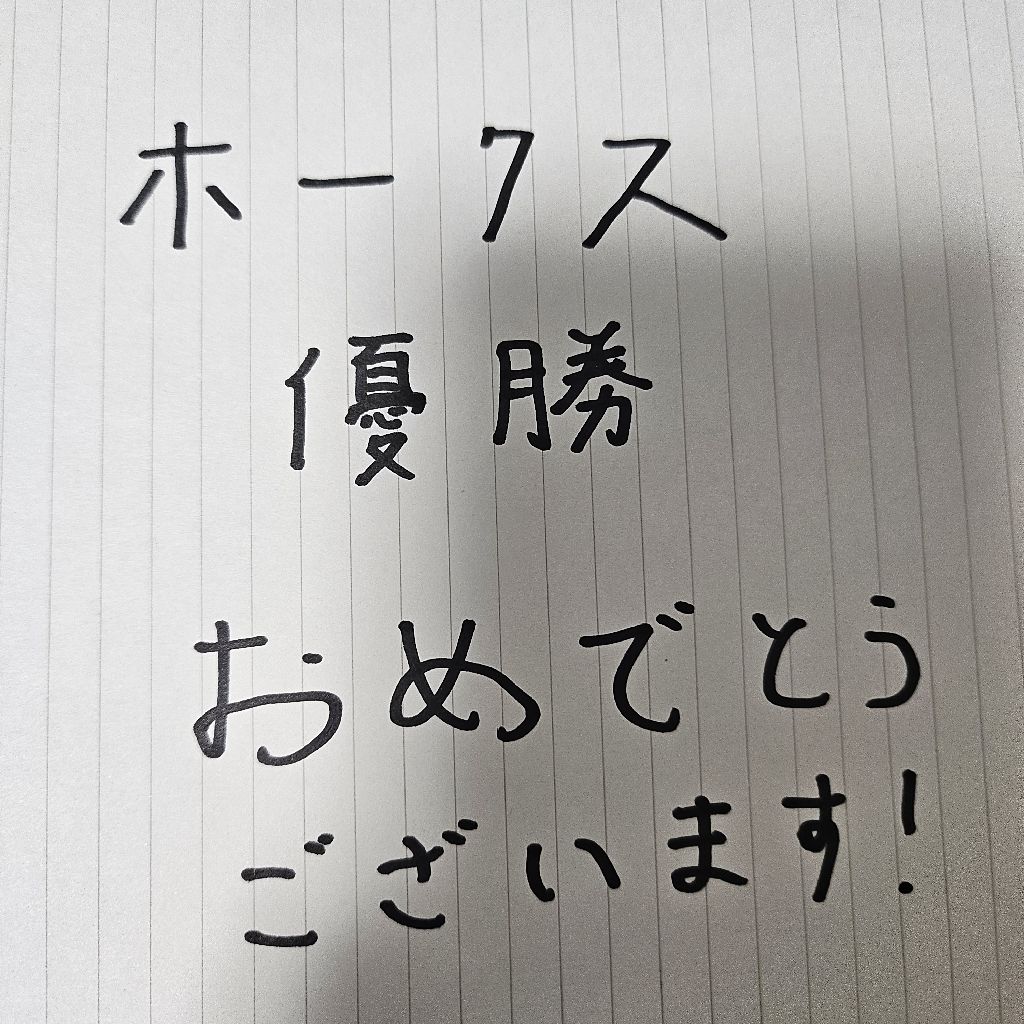 ホークス
優勝
おめでとう
ございます!